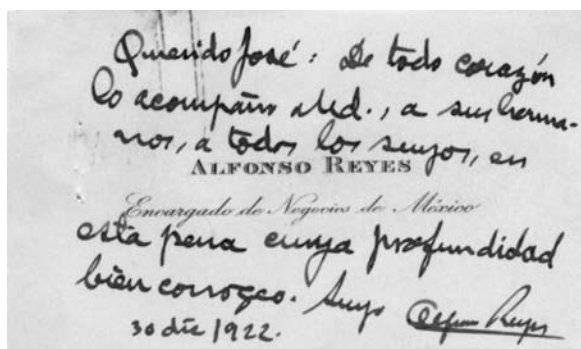 Querido José: De todo corazón
lo acompaño a Ud., a sus herma-
nos, a todos los suyos, en
ALFONSO REYES
Encargado de Negocios de México
esta pena cuya profundidad
bien conozco. Suyo Alfonso Reyes
30 dic 1922.